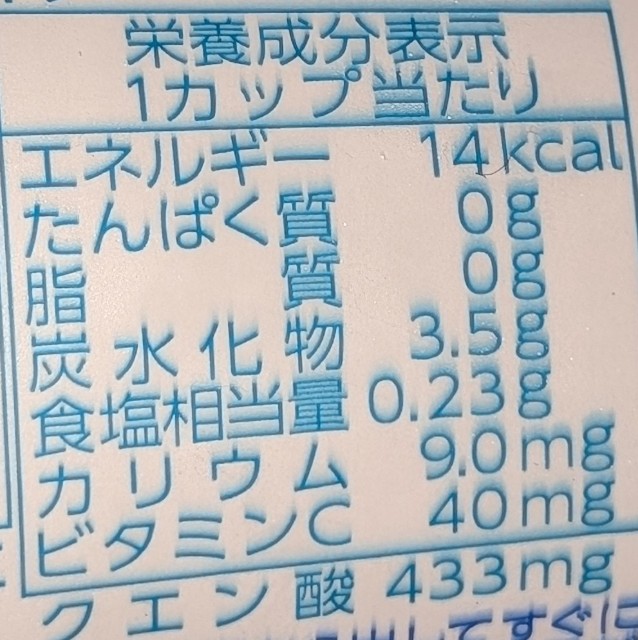 栄養成分表示
1カップ当たり
エネルギー 14kcal
たんぱく質 0g
脂質 0g
炭水化物 3.5g
食塩相当量 0.23g
カリウム 9.0mg
ビタミンC 40mg
クエン酸 433mg
してすぐに